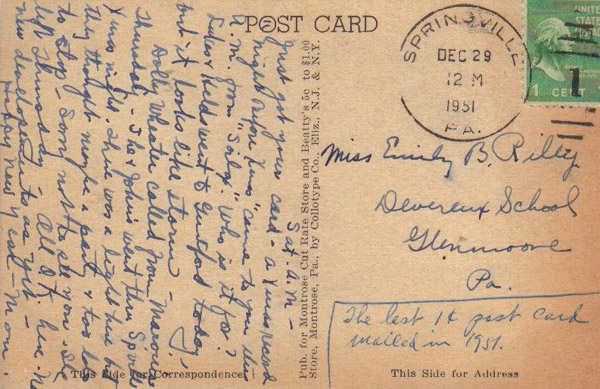 POST CARD
SPRINGVILLE
DEC 29
12 M
1951
PA.
UNITED STATES
1 CENT
1
Sat. A.M -
Just got your card - a Xmas record
"Night before Xmas" came to you this
A.M. from "Sally". Who is it for?
went to Guilford today
but it looks like storm -
Doll Wheater called Mom -
Thursday - & Johns went thru
Xmas night. There was a light here but
they thought maybe a party & too late
to stop - Sorry not to see you. She
left Thursday - All O.K. here. No
new developments as yet -
Happy new year - Mom.
Pub. for Montrose Cut Rate Store and Beatty's 5c to $1.00
Store, Montrose, Pa., by Collotype Co., Eliz., N.J. & N.Y.
Miss Emily B. Rilly
Devereux School
Glenmoore
Pa.
The last 1¢ post card
mailed in 1951.
This Side for Correspondence
This Side for Address